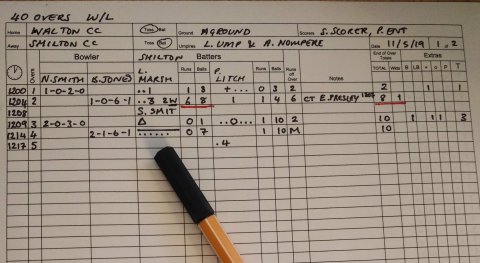 40 OVERS W/L
Home WALTON CC Toss Bat Ground AGROUND Scorers S. SCORER, P. ENT
Away SMILTON CC Toss Bat Umpires L. UMP & A. NOMPERE Date 11/5/19 1,2
Bowler SMILTON Batters End of Over Totals Extras
Overs N. SMITH B. JONES L. MARSH Runs Balls P. LITCH Runs Balls Runs off Over Notes TOTAL Wkts B LB + o P T
1200 1 1-0-2-0 ..1 1 3 +... 0 3 2 2 1 1
1204 2 1-0-6-1 ..3 2W 6 8 1 1 4 6 CT E. PRESLEY 1207 8 1
1208 S. SMIT
1209 3 2-0-3-0 Δ 0 1 ..O... 1 10 2 10 1 1 3
1214 4 2-1-6-1 ...... 0 7 1 10 M 10
1217 5 .4